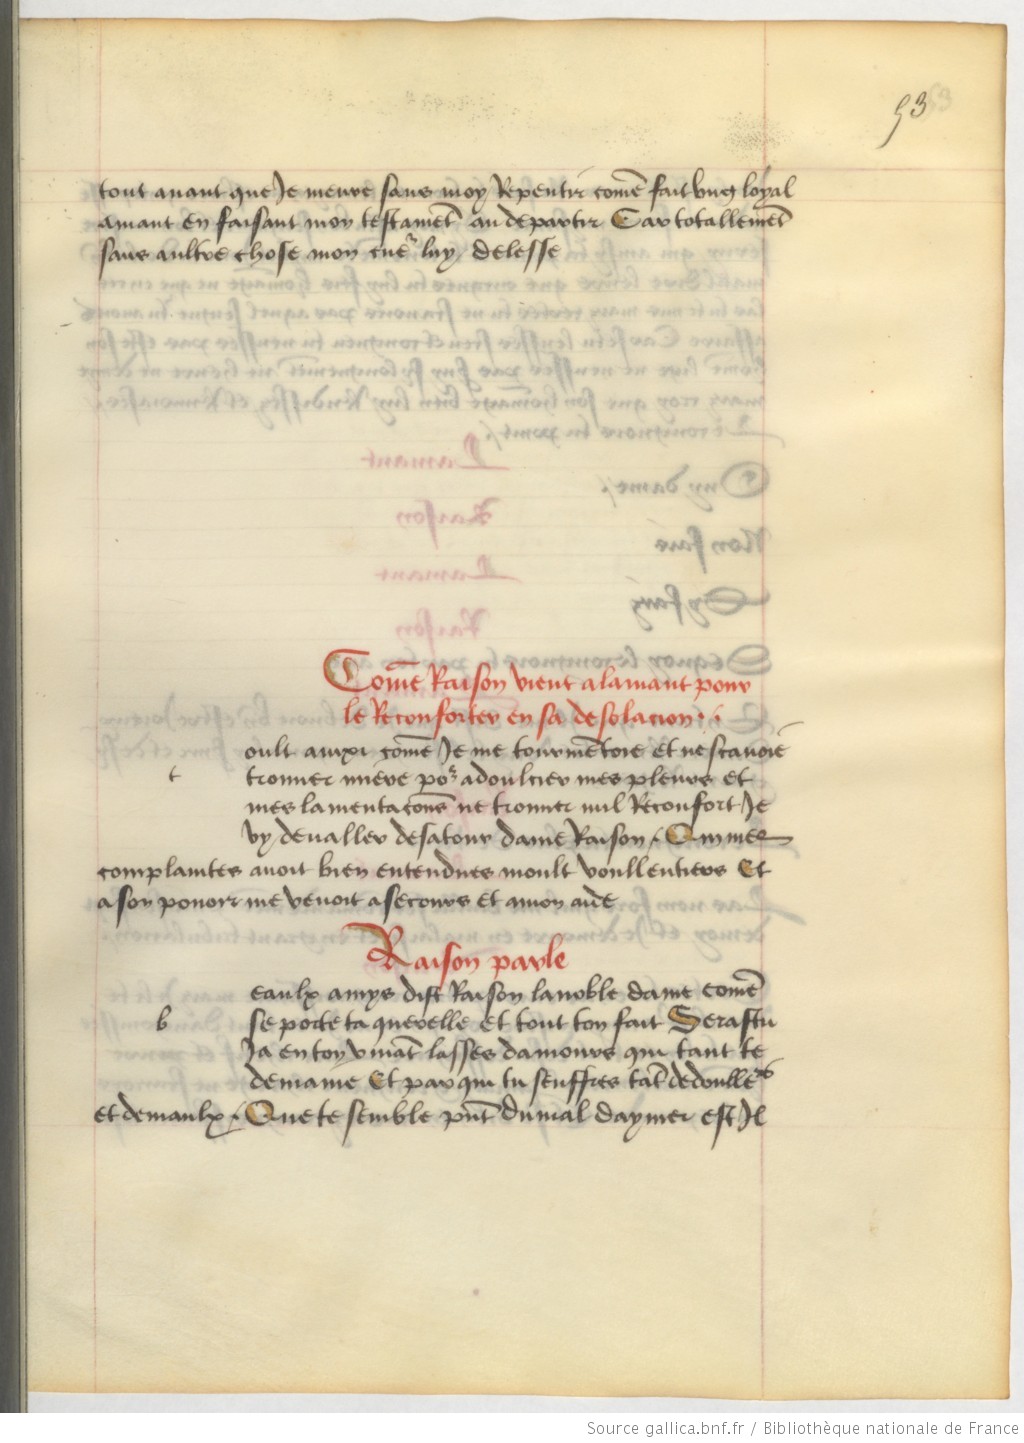 53
tout auant que Je meure sans moy Repentir com̃e fait vng loyal
amant en faisant mon testamẽt au departir Car totallemẽt
sans aultre chose mon cueˀ luy delesse
Com̃e Raison vient a lamant pour
le Reconforter en sa desolacion
oult com̃e Je me tourmẽtoie et ne scauoie
t
trouuer poˀ adoulcier mes pleurs et
mes lamentacõns ne trouuer nul Reconfort Je
vy deualler de sa tour dame Raison Qui mes
complaintes auoit bien entendues moult voullentiers Et
a son pouoir me venoit a secours et a mon aide
Raison parle
eaulx amys dist Raison la noble dame com̃e
b
se porte ta querelle et tout ton fait Seras tu
Ja en ton viuãt lasses damours qui tant te
demaine Et par qui tu seuffres tãt de doulleˀs
et de maulx Que te semble pñt du mal daymer est Jl
Source gallica.bnf.fr / Bibliothèque nationale de France